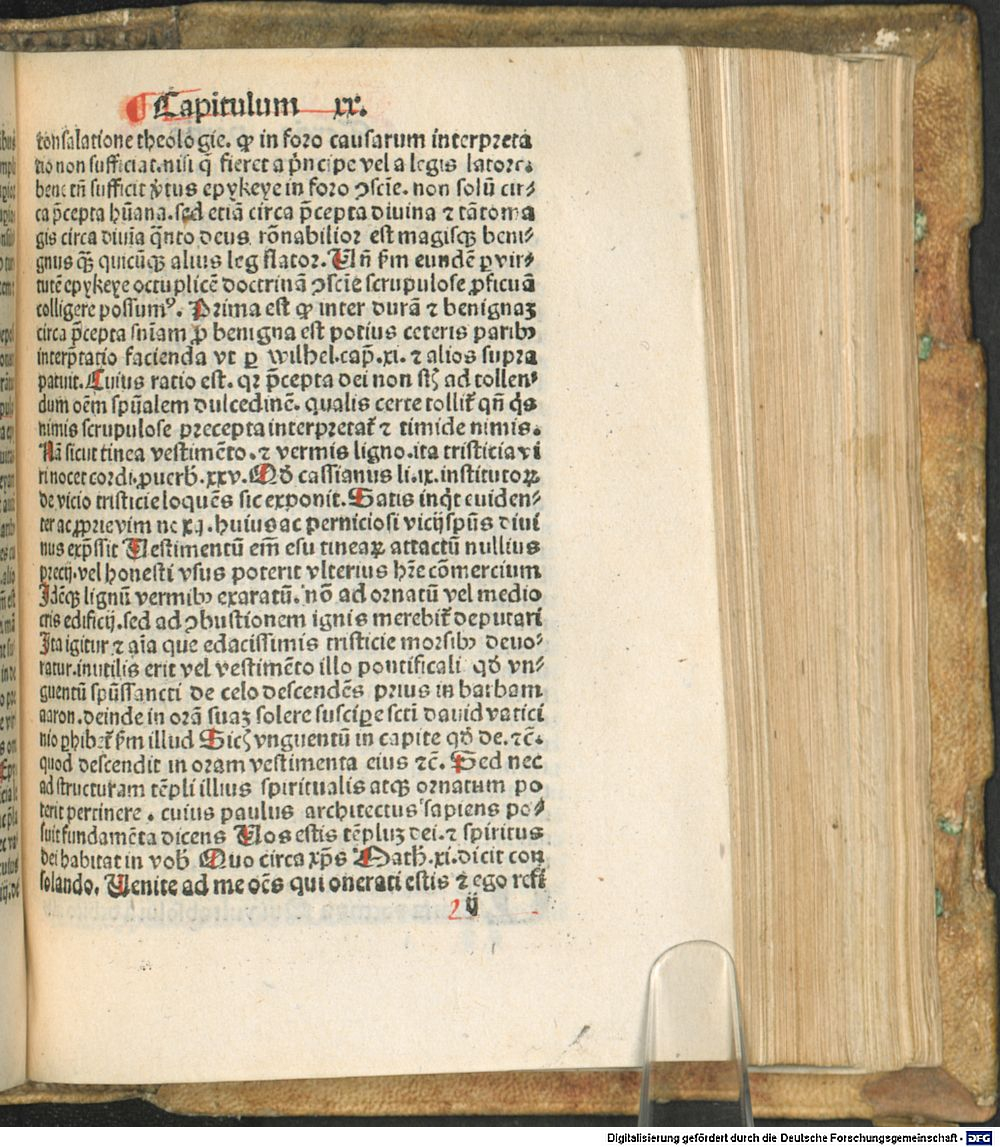 Capitulum xx.
consalatione theologie. ꝙ in foro causarum interpreta
tio non sufficiat. nisi q̄ fieret a p̓ncipe vel a legis latore.
bene tn̄ sufficit v̓tus epykeye in foro ɔscīe. non solū cir⸗
ca p̄cepta hūana. sed etiā circa p̄cepta diuina ⁊ tāto ma
gis circa diuīa q̄nto deus rōnabilior est magisqꝫ beni⸗
gnus qꝫ̄ quicūqꝫ alius leg slator. Un̄ ẜm eundē ꝑ vir⸗
tutē epykeye octuplicē doctrinā ɔscīe scrupulose ꝓficuā
colligere possumꝰ. Prima est ꝙ inter durā ⁊ benignaꝫ
circa p̄cepta sniam ꝓ benigna est potius ceteris paribꝫ
interp̄tatio facienda vt ꝑ wilhel. cap̄. xi. ⁊ alios supra
patuit. Cuius ratio est. qꝛ p̄cepta dei non st̄ ad tollen⸗
dum oēm spūalem dulcedinē. qualis certe tollit̉ qn̄ q̓s
nimis scrupulose precepta interpretat̉ ⁊ timide nimis.
Nā sicut tinea vestimēto. ⁊ vermis ligno. ita tristicia vi
ri nocet cordi. ꝓuerb̄. xxv. Qḋ cassianus li. ix. institutoꝝ
de vicio tristicie loquēs sic exponit. Satis inq̓t euiden⸗
ter ac ꝓprie vim ne x ꝗ. huius ac perniciosi vicij spūs diui
nus exp̄ssit Uestimentū em̄ esu tineaꝝ attactū nullius
precij. vel honesti vsus poterit vlterius hr̄e cōmercium
Idēqꝫ lignū vermibꝫ exaratū. nō ad ornatū vel medio
cris edificij. sed ad ɔbustionem ignis merebit̉ deputari
Ita igitur ⁊ aīa que edacissimis tristicie morsibꝫ deuo⸗
ratur. inutilis erit vel vestimēto illo pontificali qḋ vn⸗
guentū spūssancti de celo descendēs prius in barbam
aaron. deinde in orā suaꝫ solere suscipe scti dauid vatici
nio ꝑhibet̉ ẜm illud Sicꝫ vnguentū in capite qḋ de. ⁊c̄.
quod descendit in oram vestimenta eius ⁊c̄. Sed nec
ad structuram tēpli illius spiritualis atqꝫ ornatum po
terit pertinere. cuius paulus architectus sapiens po⸗
suit fundamēta dicens Uos estis tēpluꝫ dei. ⁊ spiritus
dei habitat in vob̄ Quo circa xp̄s Math̄. xi. dicit con
solando. Uenite ad me oēs qui onerati estis ⁊ ego refi
2 ij
Digitalisierung gefördert durch die Deutsche Forschungsgemeinschaft - DFG